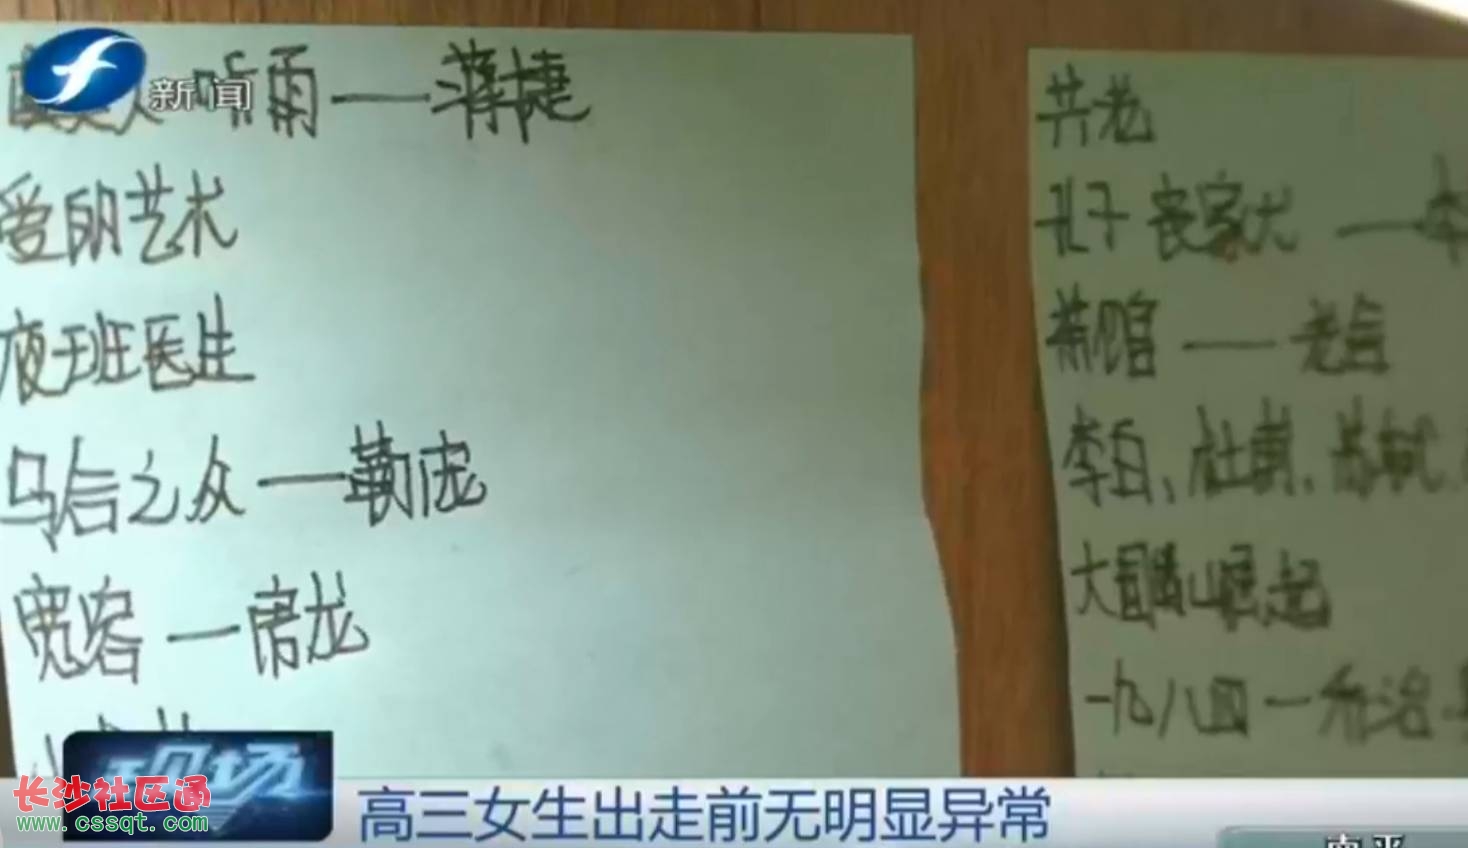 新闻
美人 听雨——蒋捷
爱的艺术
夜班医生
乌合之众——勒庞
宽容——房龙
共老
孔子 丧家犬——李
茶馆——老舍
李白、杜甫、苏轼、
大国崛起
一九八四—乔治·
现场
长沙社区通
www.cssqt.com
高三女生出走前无明显异常
南平